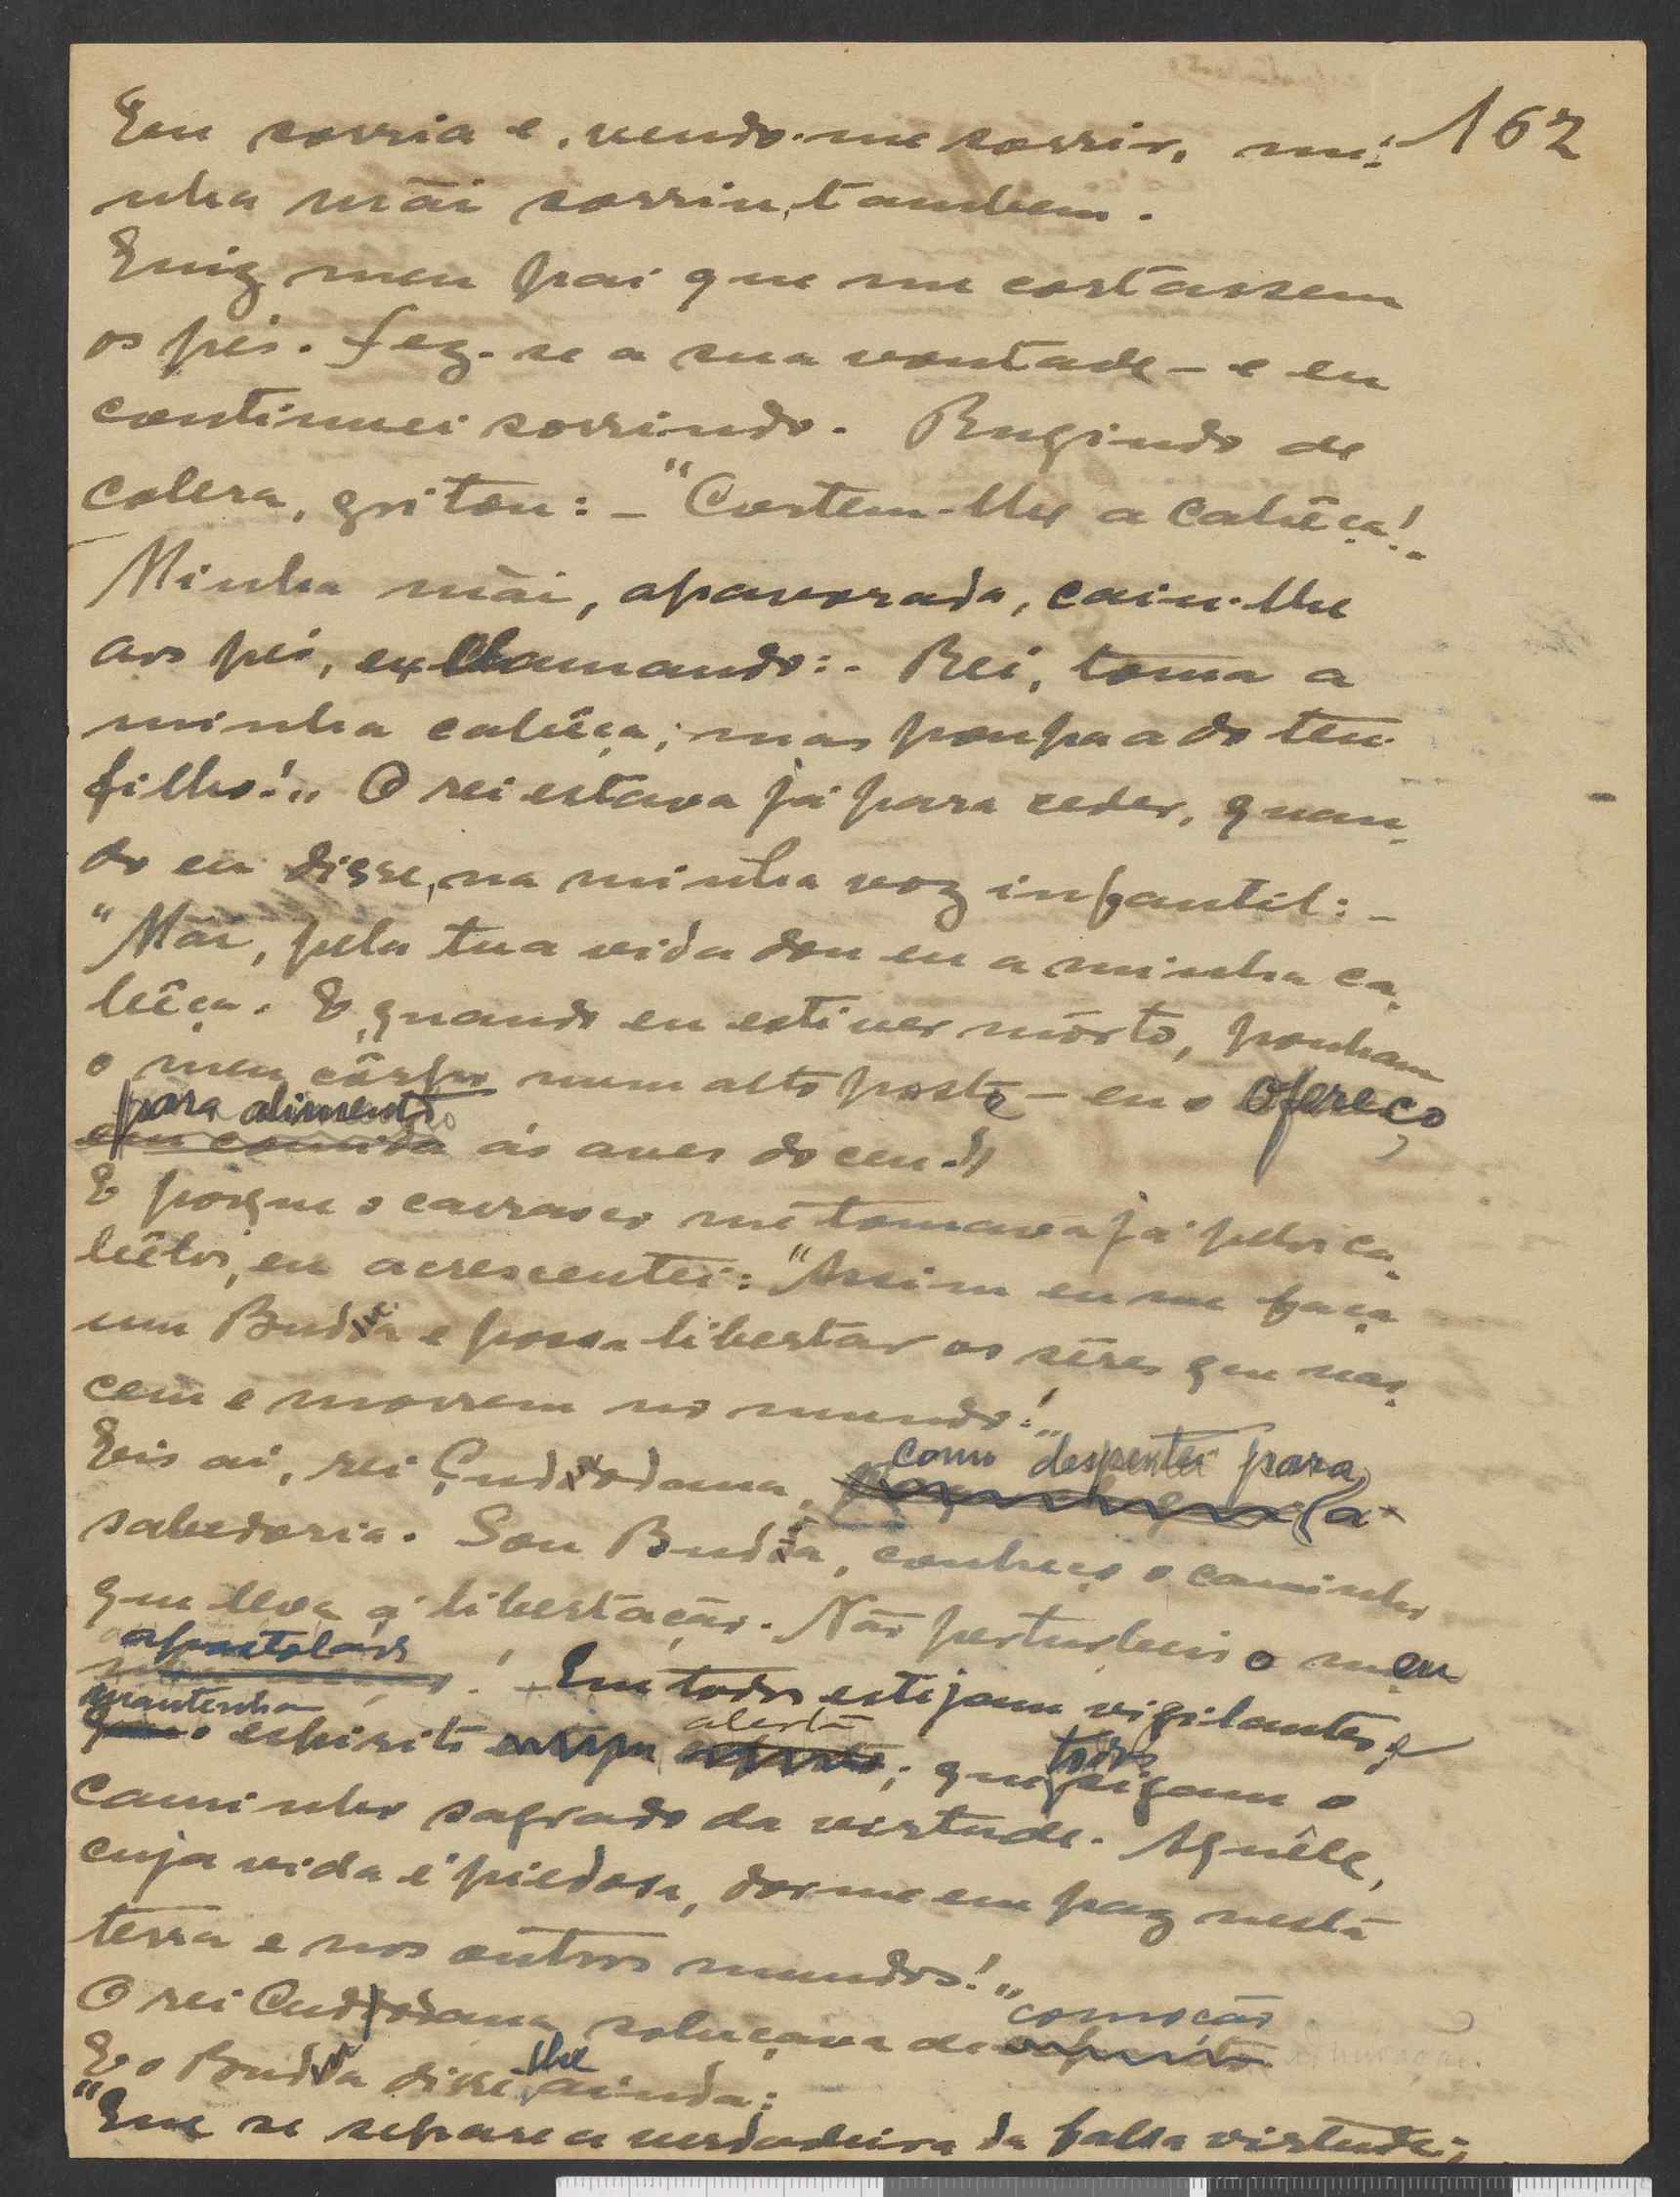 162
Eu sorria e, vendo-me sorrir, mi-
nha mãi sorriu, tambem.
Quiz meu pai que me cortassem
os pés. Fez-se a sua vontade – e eu
continuei sorrindo. Rugindo de
colera, gritou: – "Cortem-lhe a cabêça!"
Minha mãi, apavorada, caiu-lhe
aos pés, exclamando: - Rei, toma a
minha cabêça; mas poupa a do teu
filho!" O rei estava já para ceder, quan-
do eu disse, na minha voz infantil: –
"Mãi, pela tua vida dou eu a minha ca-
bêça. E, quando eu estiver môrto, ponham
o meu côrpo num alto poste – eu o ofereço
para alimento
em comida ás aves do ceu."
E porque o carrasco me tomava já pelos ca-
bêlos, eu acrescentei: "Assim eu me faça
um Buda e possa libertar os sêres que nas-
cem e morrem no mundo!"
como despertei para
Eis aí, rei Çudodana, a
sabedoria. Sou Buda, conheço o caminho
que leva á libertação. Não perturbeis o meu
apostolado
! – Que todos estejam vigilantes e
mantenham alerta todos
o espirito esteja; que sigam o
caminho sagrado da virtude. Aquêle,
cuja vida é piedosa, dorme em paz nesta
terra e nos outros mundos!"
comoção
O rei Çudodana soluçava de
lhe
E o Buda disse ainda:
"Que se separe a verdadeira da falsa virtude;